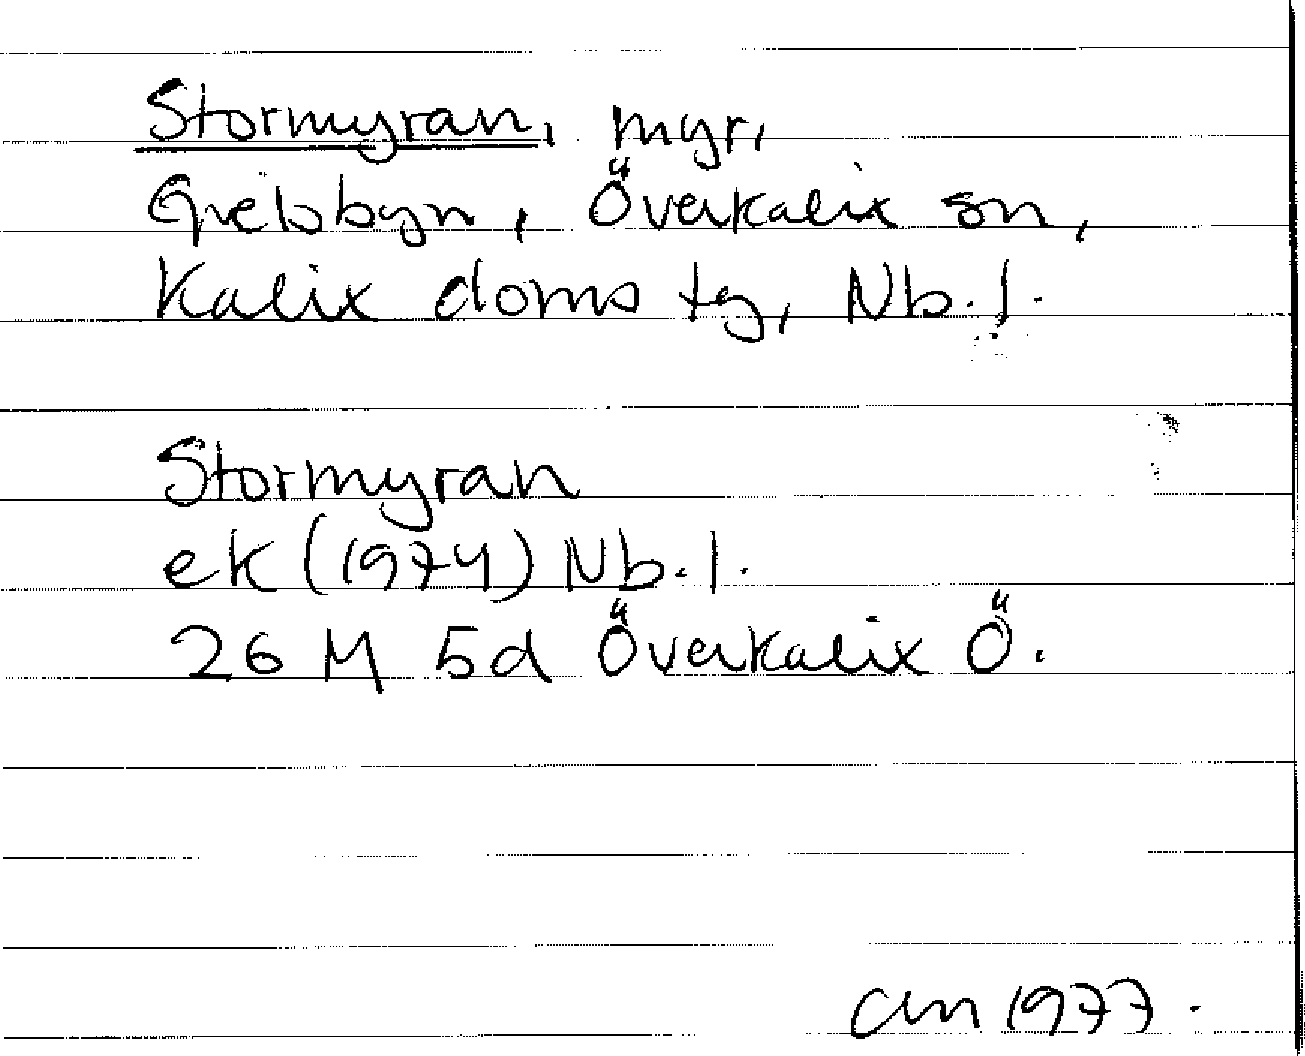 Stormyran, myr,
Grelsbyn, Överkalix sn,
Kalix doms tg, Nb. l.
Stormyran
ek (1974) Nb. l.
26 M 5d Överkalix Ö.
1977.